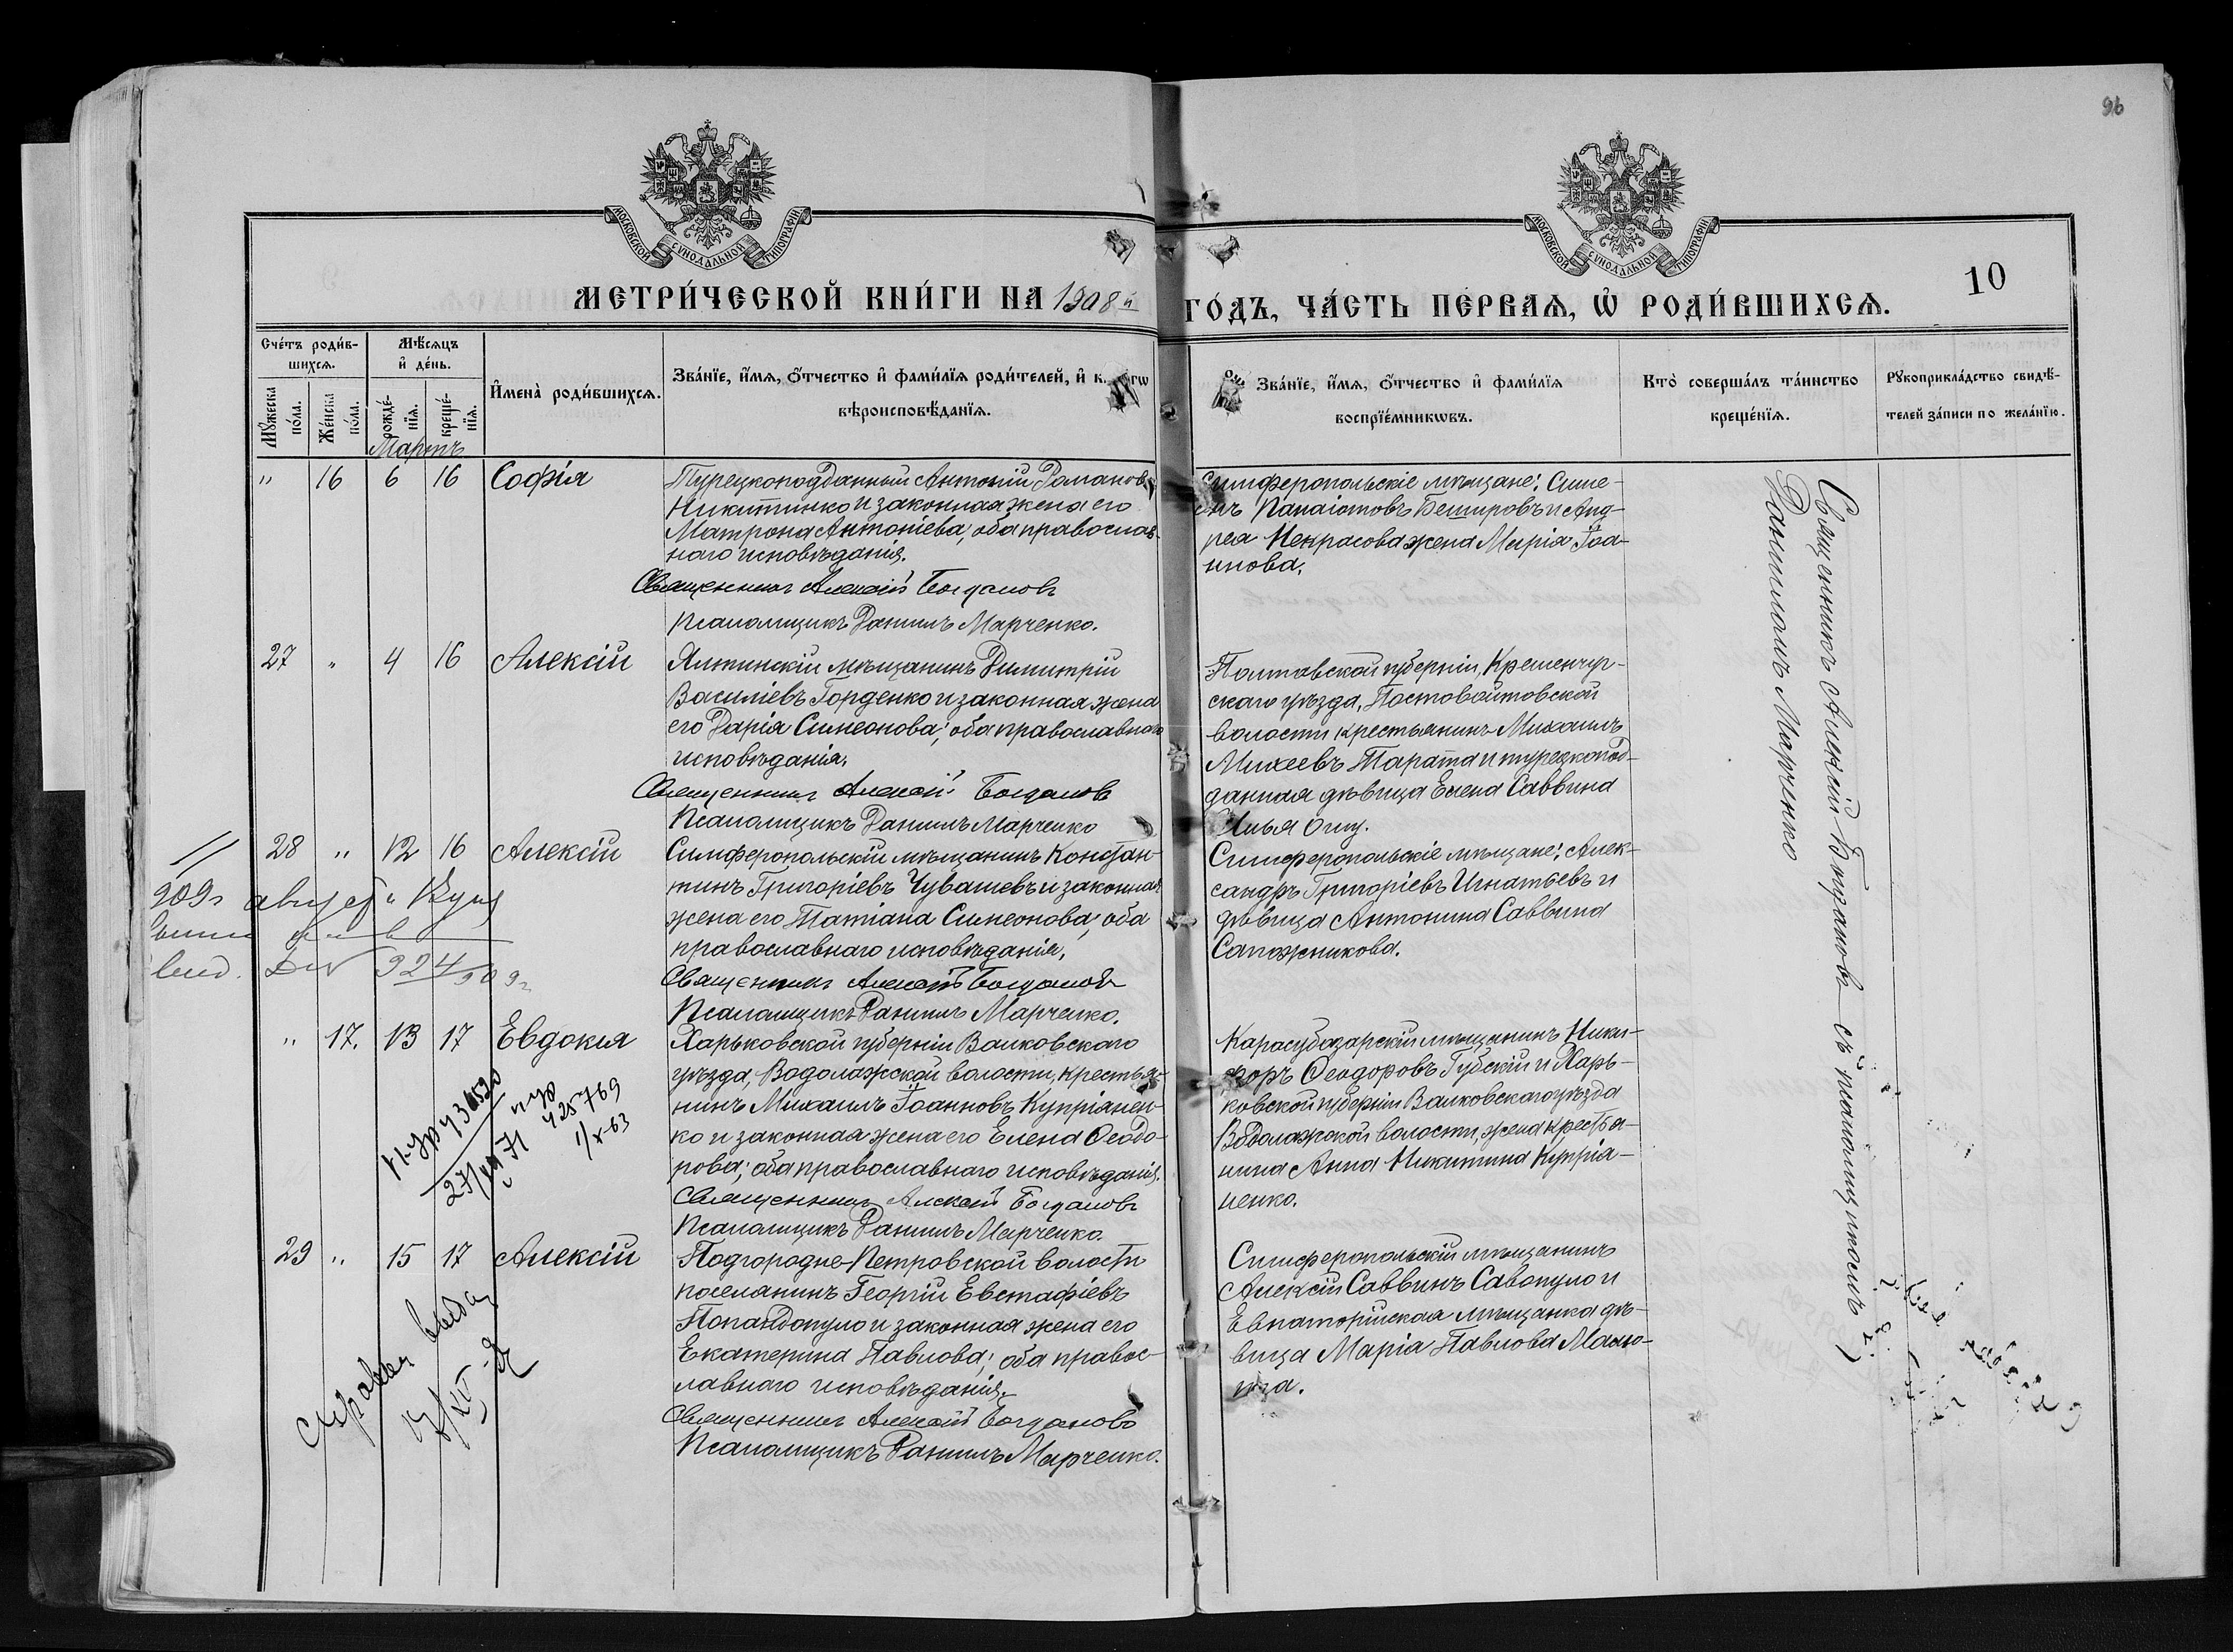 96
МОСКОВСКОЙ СѴНОДАЛЬНОЙ ТИПОГРАФІИ
МОСКОВСКОЙ СѴНОДАЛЬНОЙ ТИПОГРАФІИ
10
МЕТРИ́ЧЕСКОЙ КНИ́ГИ НА 1908й
ГО́ДЪ, ЧА́СТЬ ПЕ́РВАѦ, Ѡ҆ РОДИ́ВШИХСѦ.
Сче́тъ роди́в-
шихсѧ.
Мѣ́сѧцъ
и҆ де́нь.
Мꙋ́жеска по́ла.
Же́нска по́ла.
рожде́-нїѧ.
креще́-нїѧ.
И҆мена̀ роди́вшихсѧ.
Зва́нїе, и҆́мѧ, ѻ҆́тчество и҆ фами́лїѧ роди́телей, и҆ к
вѣроисповѣ́данїѧ.
Зва́нїе, и҆́мѧ, ѻ҆́тчество и҆ фами́лїѧ
воспрїе́мникѡвъ.
Кто̀ соверша́лъ та́инство
креще́нїѧ.
Рꙋкоприкла́дство свидѣ́-
телей за́писи по жела́нїю.
Мартъ
" 16 6 16 Софія
Турецкоподданный Антоній Романовъ
Никитинко и законная жена его
Матрона Антоніева, оба православ-
наго исповѣданія.
Священникъ Алексій Богдановъ
Псаломщикъ Даниилъ Марченко.
Симферопольскіе мѣщане: Симе-
онъ Панаіотовъ Бешировъ и Анд-
рея Некрасова жена Марія Іоа-
ннова.
27 " 4 16 Алексій
Ялтинскій мѣщанинъ Димитрій
Василіевъ Горденко и законная жена
его Дарія Симеонова; оба православнаго
исповѣданія.
Священникъ Алексій Богдановъ
Псаломщикъ Даниилъ Марченко
Полтавской губерніи, Кременчуг-
скаго уѣзда,
волости крестьянинъ Михаилъ
Михеевъ Тарата и турецкопод-
данная дѣвица Елена Саввина
28 " 12 16 Алексій
Симферопольскій мѣщанинъ Констан-
тинъ Григоріевъ Чувашевъ и законная
жена его Татіана Симеонова; оба
православнаго исповѣданія.
Священникъ Алексій Богдановъ
Псаломщикъ Даниилъ Марченко.
Симферопольскіе мѣщане: Алек-
сандръ Григоріевъ Игнатьевъ и
дѣвица Антонина Саввина
Сапожникова.
909г август
924 909г
" 17. 13 17 Евдокия
Харьковской губерніи Валковскаго
уѣзда, Водолажской волости, крестья-
нинъ Михаилъ Іоанновъ Купріанен-
ко и законная жена его Елена Ѳеодо-
рова; оба православнаго исповѣданія.
Священникъ Алексій Богдановъ
Псаломщикъ Даниилъ Марченко.
Карасубазарскій мѣщанинъ Ники-
форъ Ѳеодоровъ Губскій и Харь-
ковской губерніи Валковскаго уѣзда
Водолажской волости, жена крестья-
нина Анна Никитина Купріа-
ненко.
425769
29 " 15 17 Алексій
Подгородне-Петровской волости
поселянинъ Георгій Евстафіевъ
Попандопуло и законная жена его
Екатерина Павлова; оба правос-
лавнаго исповѣданія.
Священникъ Алексій Богдановъ
Псаломщикъ Даниилъ Марченко.
Симферопольскій мѣщанинъ
Алексій Саввинъ Савопуло и
Евпаторійская мѣщанка дѣ-
вица Марія Павлова
справка выда
Священникъ Алексій Богдановъ съ псаломщикомъ
Данииломъ Марченко